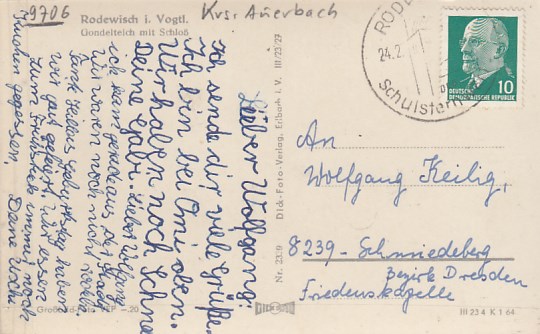 9706
Krs: Auerbach
Rodewisch i. Vogtl.
Gondelteich mit Schloß
Lieber Wolfgang!
Ich sende dir viele Grüße.
Ich bin bei Omi oben.
Wir haben noch Schnee
Deine Gabi. Liebe Wolfgang
ich kam gerade aus der
wir waren noch nicht
Gabys haben
wir gut gefeiert wir essen
zum Frühstück immer noch
Kuchen gegessen Deine
Großbild-Foto EVP -.20
Dick-Foto-Verlag, Erlbach i. V. III/23/27
Nr. 2319
ROD
24.2.
Schulstern
DEUTSCHE
DEMOKRATISCHE REPUBLIK
10
An
Wolfgang Keilig,
8239 - Schmiedeberg
Bezirk Dresden
Friedenskapelle
III 23 4 K 1 64